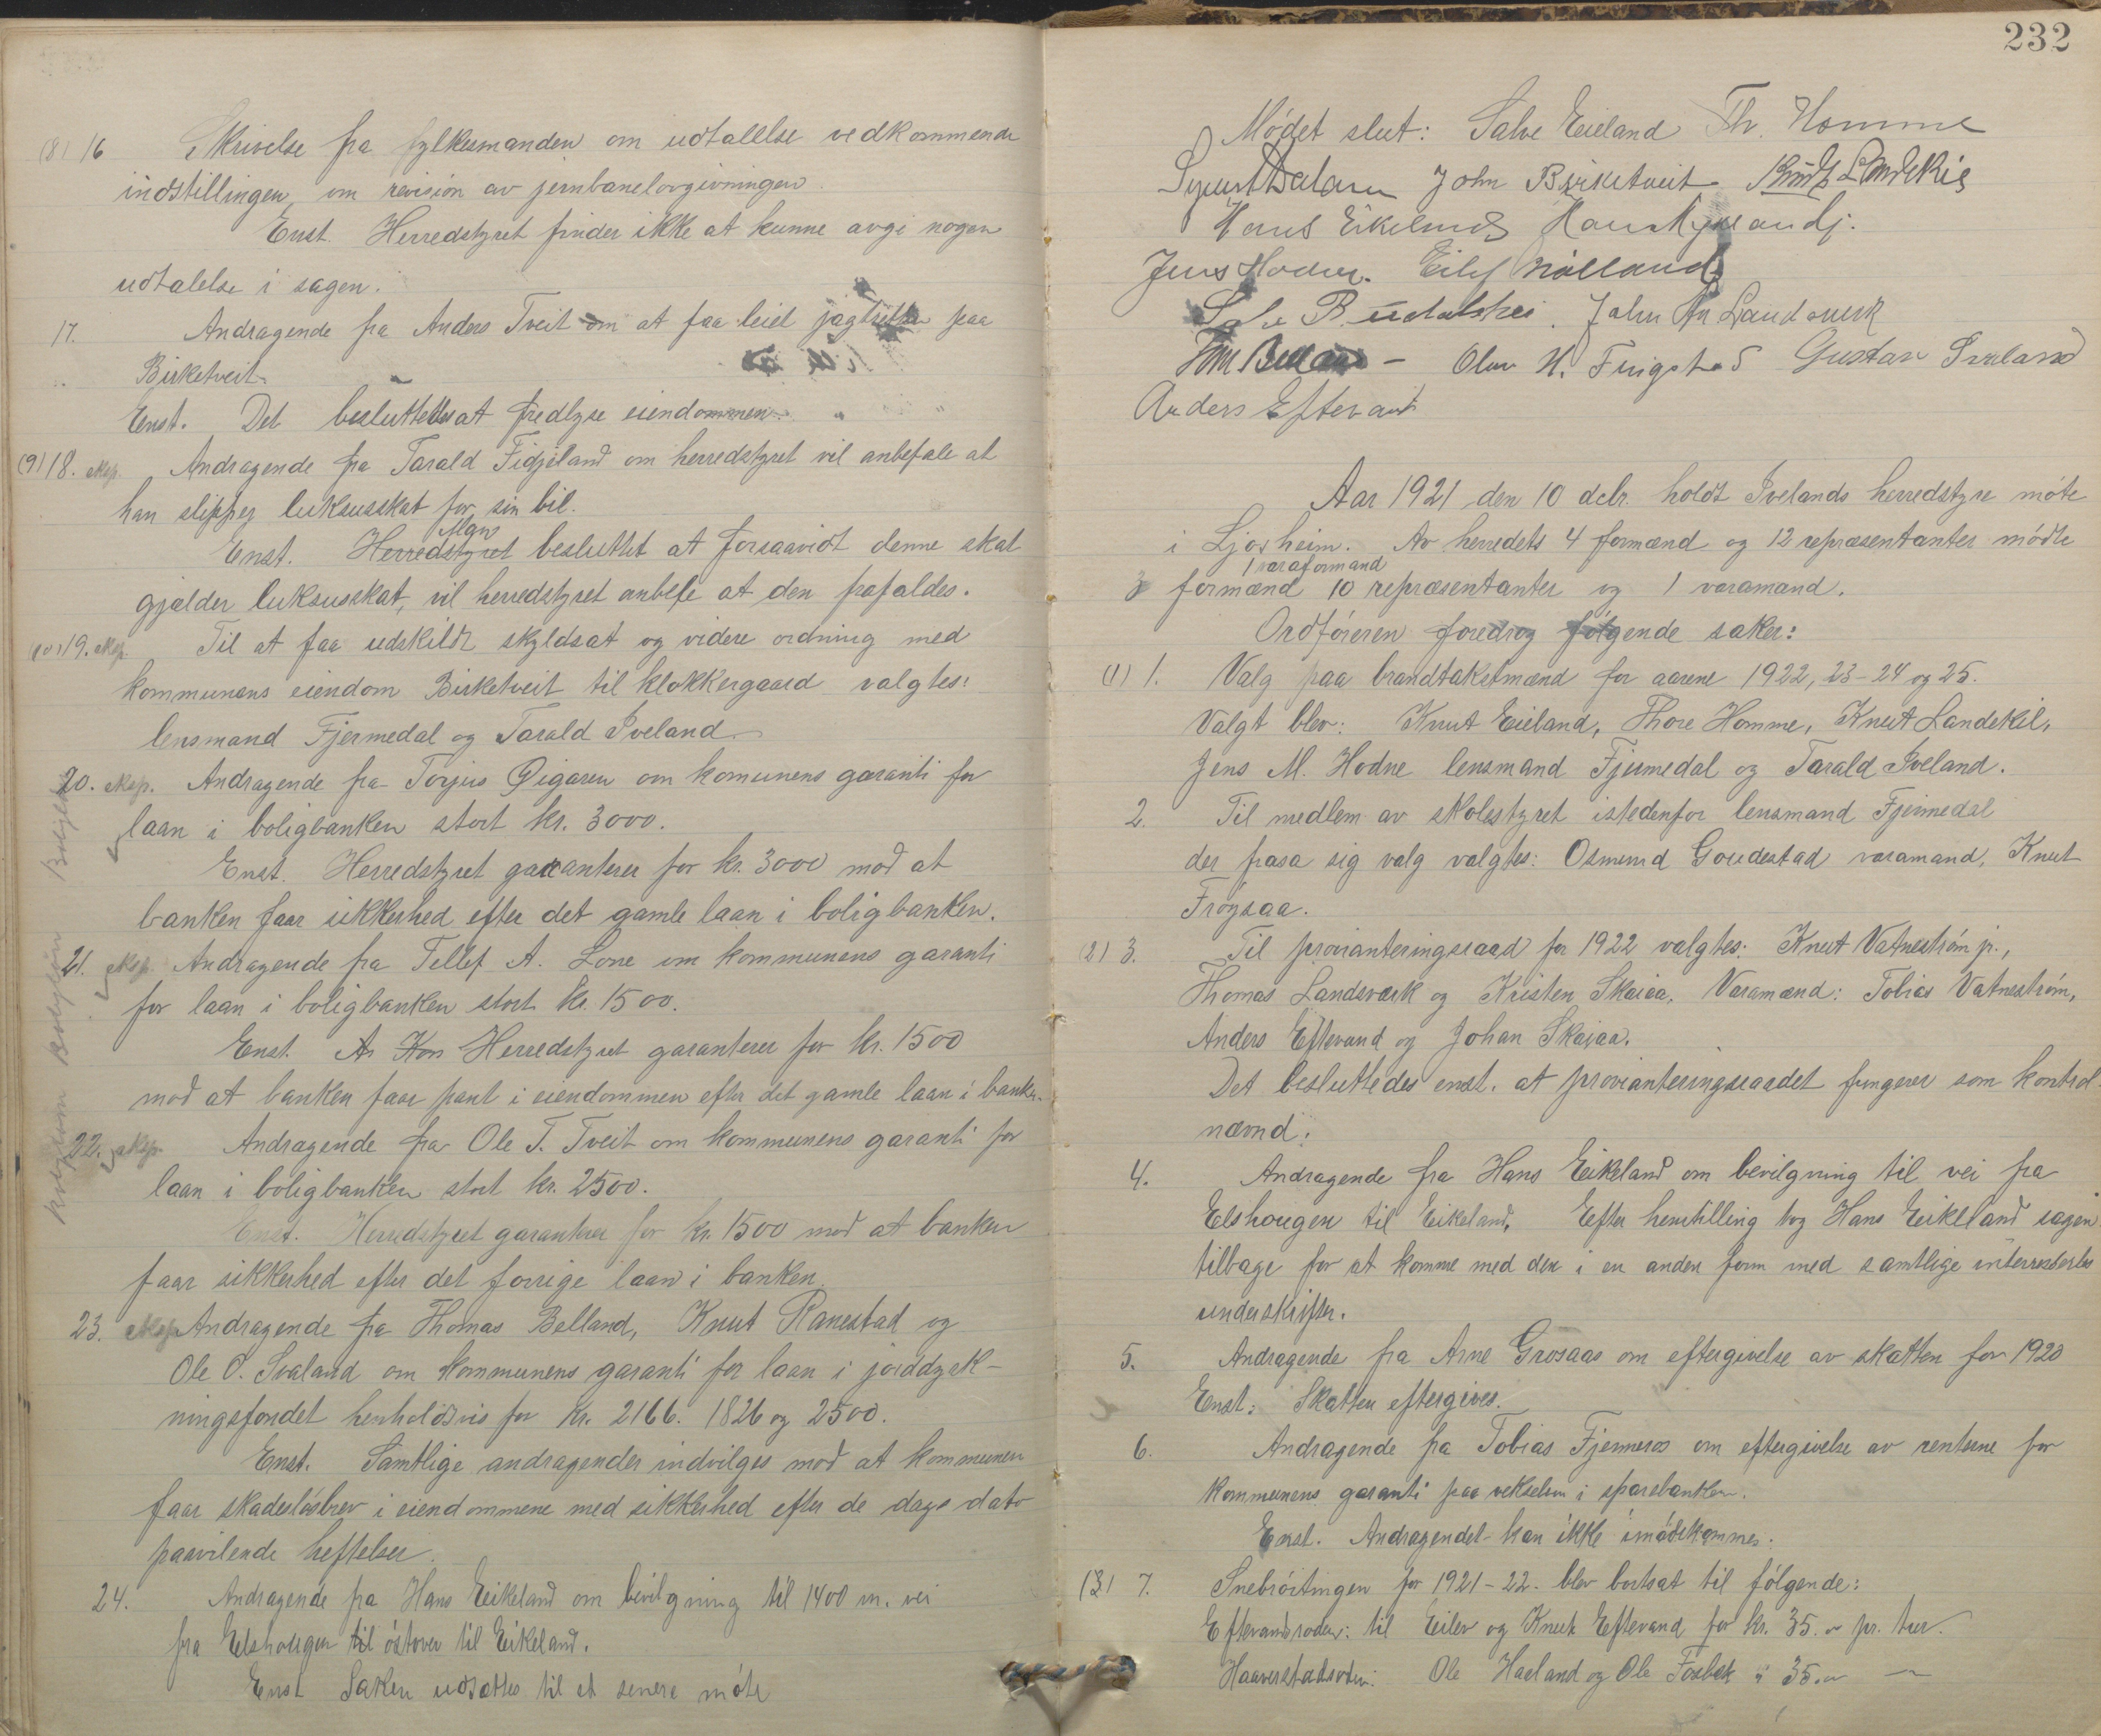 (8) 16 Skrivelse fra fylkesmanden om udtalelse vedkommende
indstillingen om revision av jernbanelovgivningen.
Enst. Herredstyret finder ikke at kunne avgi nogen
udtalelse i sagen.
17. Andragende fra Anders Tveit om at faa leiet jagtretten paa
Birketveit.
Enst. Det besluttedes at fredlyse eiendommen.
(9) 18. eksp. Andragende fra Tarald Fidjeland om herredstyret vil anbefale at
han slipper luksusskat for sin bil.
Man
Enst. Herredstyret besluttet at forsaavidt denne skat
gjælder luksusskat, vil herredstyret anbefe at den frafaldes.
(10) 19. eksp. Til at faa udskildt skyldsat og videre ordning med
kommunens eiendom Birketveit til klokkergaard valgtes:
lensmand Fjermedal og Tarald Iveland.
20. eksp. Andragende fra Torjus Øigaren om komunens garanti for
laan i boligbanken stort kr. 3000.
Enst. Herredstyret garanterer for kr. 3000 mod at
banken faar sikkerhed efter det gamle laan i boligbanken.
21. eksp. Andragende fra Tellef A. Lone om kommunens garanti
for laan i boligbanken stort kr. 1500.
Enst. Ar Kon Herredstyret garanterer for kr. 1500
mod at banken faar pant i eiendommen efter det gamle laan i banken.
22. eksp. Andragende fra Ole T. Tveit om kommunens garanti for
laan i boligbanken stort kr. 2500.
Enst. Herredstyret garanterer for kr. 1500 mod at banken
faar sikkerhed efter det forrige laan i banken.
23. eksp. Andragende fra Thomas Belland, Knut Ranestad og
Ole O. Svaland om kommunens garanti for laan i jorddyrk-
ningsfondet henholdsvis for kr. 2166. 1826 og 2500.
Enst. Samtlige andragender indvilges mod at kommunen
faar skadesløsbrev i eiendommene med sikkerhed efter de dags dato
paavilende heftelser.
24. Andragende fra Hans Eikeland om bevilgning til 1400 m. vei
fra Elshougen til östover til Eikeland.
Enst Saken udsættes til et senere møte
232
Mödet slut: Salve Eieland Th. Homme
Syvert Dalane John Birketveit Knut Landekil
Hans Eikeland Hans Mykland j.
Jens Hodne. Eilef Mölland
Salve B. Udalshei. John An Landsverk
Tom Belland - Olav H. Fingstad Gustav Svaland
Anders Eftevand
Aar 1921 den 10 decbr. holdt Ivelands herredstyre møte
i Ljosheim. Av herredets 4 formænd og 12 repræsentanter mödte
1 varaformand
3 formænd 10 repræsentanter og 1 varamand.
Ordföreren foredrog fölgende saker:
(1) 1. Valg paa brandtakstmænd for aarene 1922, 23-24 og 25.
Valgt blev: Knut Eieland, Thore Homme, Knut Landekil,
Jens M. Hodne lensmand Fjermedal og Tarald Iveland.
2. Til medlem av skolestyret istedenfor lensmand Fjermedal
der frasa sig valg valgtes: Osmund Goudestad varamand, Knut
Frøysaa.
(2) 3. Til provianteringsraad for 1922 valgtes: Knut Vatneström jr.,
Thomas Landsværk og Kristen Skaiaa. Varamænd: Tobias Vatneström,
Anders Eftevand og Johan Skaiaa.
Det besluttedes enst. at provianteringsraadet fungerer som kontrol
nævnd.
4. Andragende fra Hans Eikeland om bevilgning til vei fra
Elshougen til Eikeland. Efter henstilling tog Hans Eikeland sagen
tilbage for at komme med den i en anden form med samtlige interresertes
underskrifter.
5. Andragende fra Arne Grosaas om eftergivelse av skatten for 1920
Enst: Skatten eftergives.
6. Andragende fra Tobias Fjermeros om eftergivelse av renterne for
kommunens garanti paa vekselen i sparebanken.
Enst. Andragendet kan ikke imødekommes.
(3) 7. Snebröitingen for 1921-22. blev bortsat til fölgende:
Eftevandsroden: til Eilev og Knut Eftevand for kr. 35. " pr. tur.
Haaverstadsroden: Ole Haaland og Ole Fosbæk " 35. "